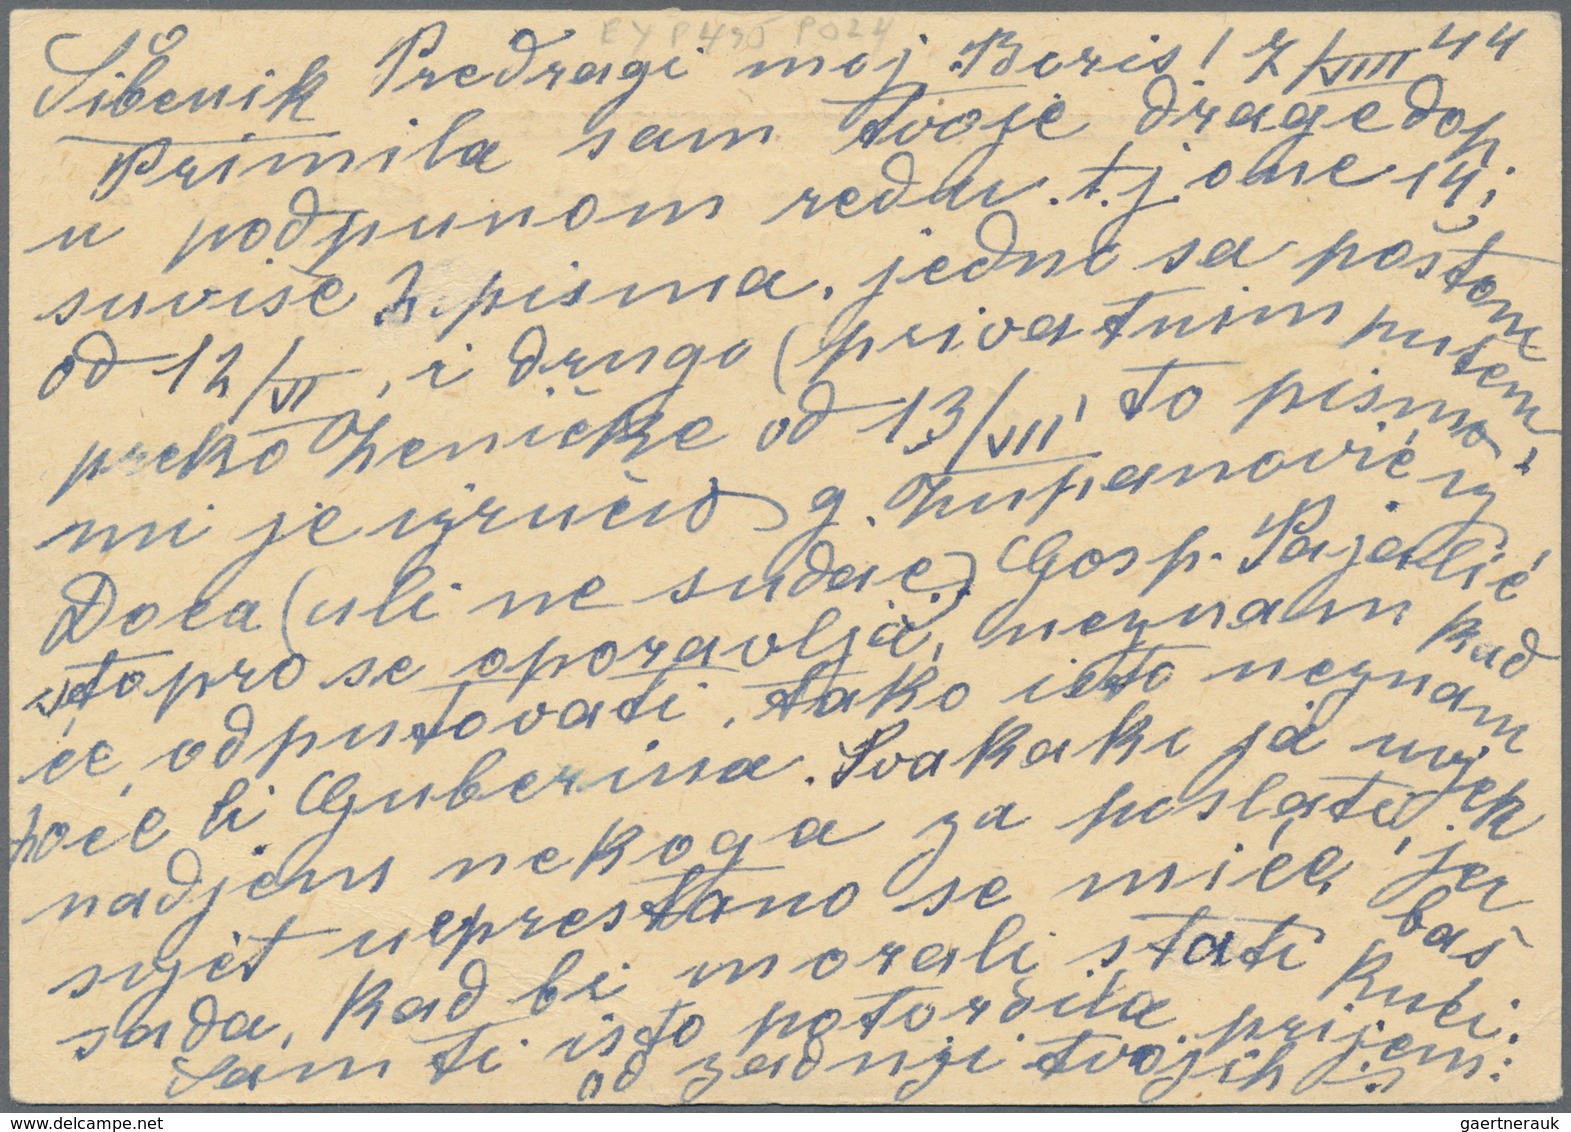 EYP490 P024
Šibenik Predragi moj Boris! 7/VIII 44
Primila sam tvoje drage dop
u podpunom redu. t.j one 14;
suviše 2 pisma. jedno sa poštom
od 12/VI, i drugo (privatnim putem
preko Zeničke od 13/VII' to pismo
mi je izručio g. Županović iz
Doca (uli ne sudac.) Gosp. Pajalić
isto pro se oporavlja, neznam kad
će odputovati, tako isto neznam
hoće li Guberina. Svakako ja uvjek
nadjem nekoga za poslati, jer
svjet neprestano se miče, baš
sada, kad bi morali stati kući.
Sam ti isto potvrdila prijem:
od zadnji tvojih
oldthing.com
gaertnerauk